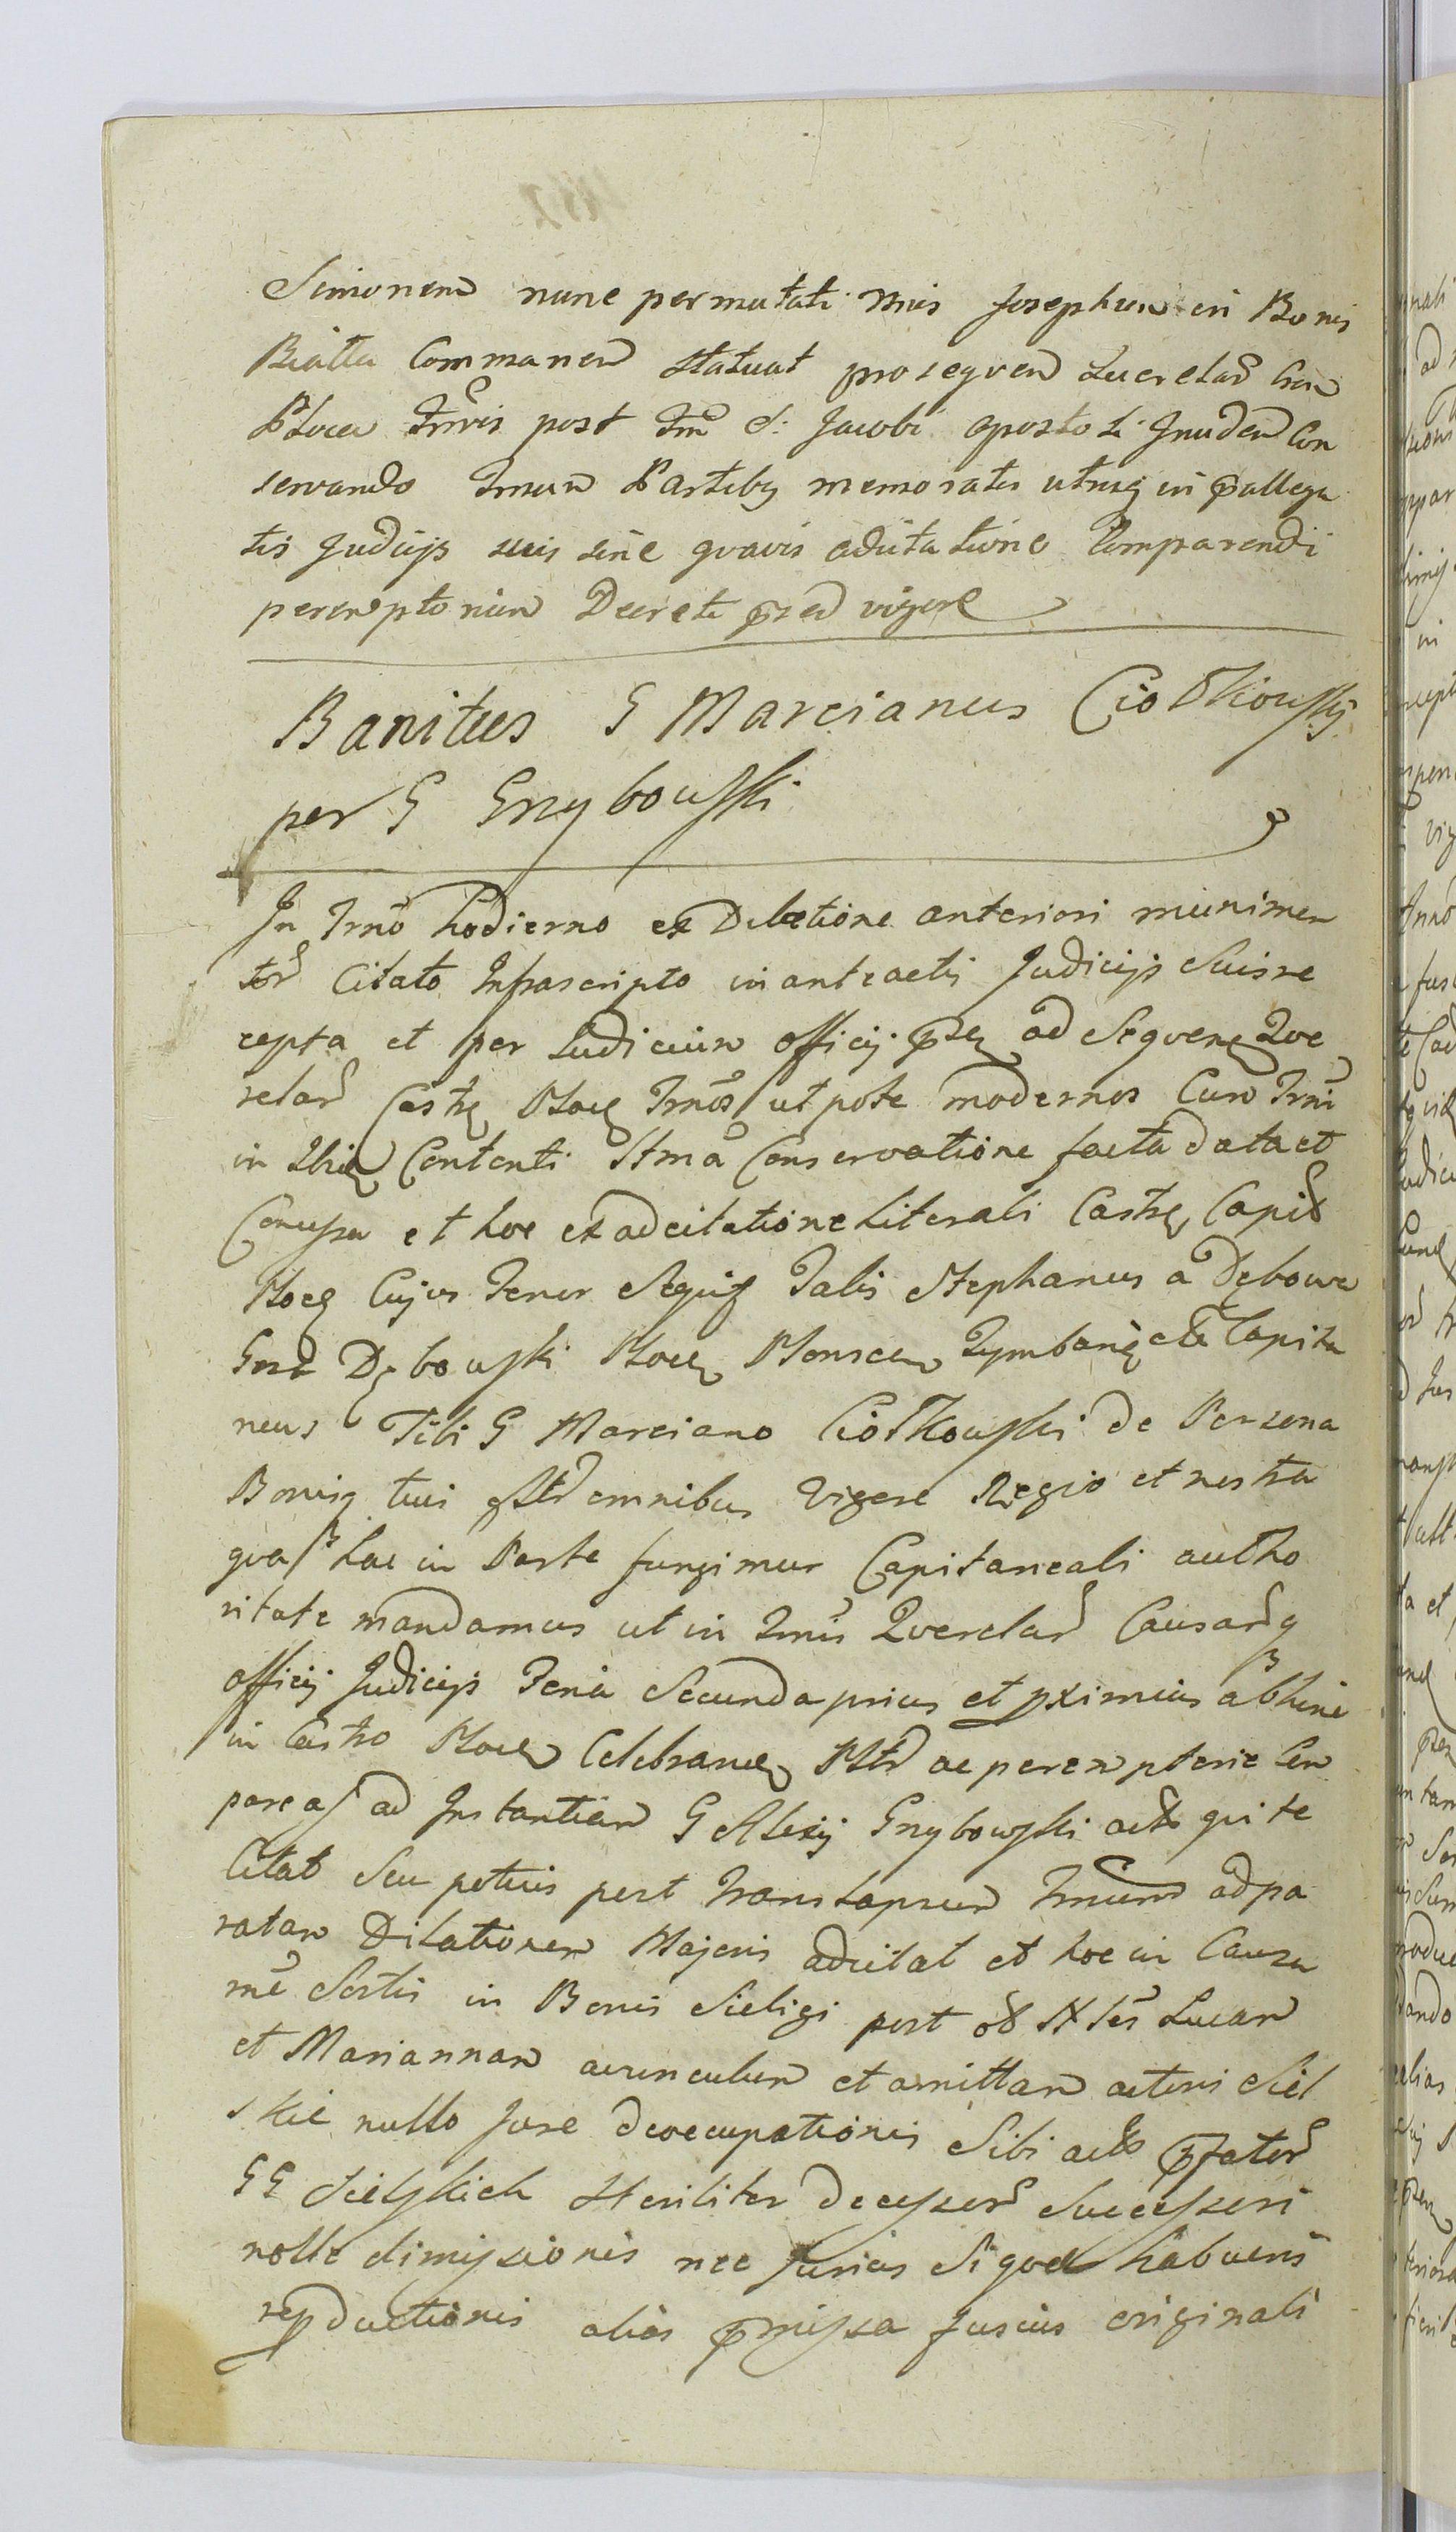 Simonem nunc permutati nris Josephum in Bonis
Biatta Commanen statuat prosequen Querelar Cau
Plocen Trnris post Trm S: Jacobi apostoli Jnuden Con
servando Tmum Partibq memoratis utrisq in pallega
tis Judicijs suis sine quavis adcitatione Comparendi
peremptorium Decreti psen vigore
Banitus G Marcianus Ciołkowski
per G Grzybowski
In Trno hodierno ex Dilatione anteriori munimen
tor Citato Infrascripto in anteactis Judicijs Suis re
cepta et per Judicium officij psen ad Sequen Que
relar Castr Plocen Trnos utpote modernos Cum Trni
in Ibid Contenti Ptma Conservatione facta data et
Concessa et hoc ex adcitatione literali Castr Capit
Plocen Cujus Tenor Sequit Talis Stephanus a Dębowa
Gora Dębowski Plocen Plonscen Zymbarq etc Capita
neus Tibi G Marciano Ciołkowski de Persona
Bonisq tuis gnlr omnibus Vigore Regio et nostra
qua hac in Parte fungimur Capitaneali autho
ritate mandamus ut in Trnis Querelar Causarq
officij Judicijs Feria Secunda prius et pximius abhinc
in Castro Plocen Celebrand Pltr ac peremptorie Com
pareas ad Instantiam G Alexij Grzybowski actor qui te
Citat Seu potius post translapsum Tmum ad pa
ratam Dilationem Majoris adcitat et hoc in Causa
me Sortis in Bonis Sieligi post ol Nles Lucam
et Mariannam avunculum et amittam actoris Siel
skie nullo Jure deoccupationis Sibi actor pfator
GG Sielskich Steriliter decessor Successori
nolle dimissionis nec Jurius Si quod habueris
repductionis alias pmissa fusius originali